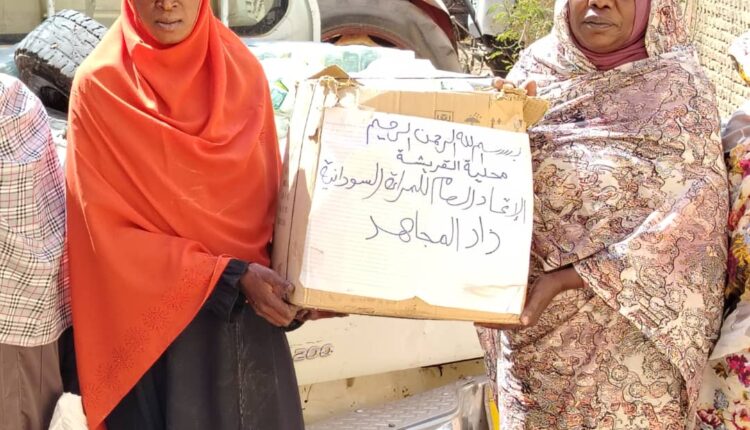 بسم الله الرحمن الرحيم
محلية القريشة
الإتحاد العام للمرأة السودانية
دار المجاهد
200